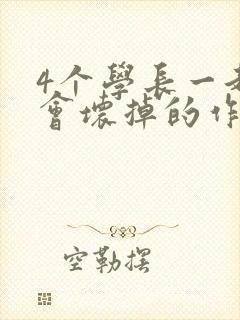 4个學長一起
會壞掉的作
空勒摆